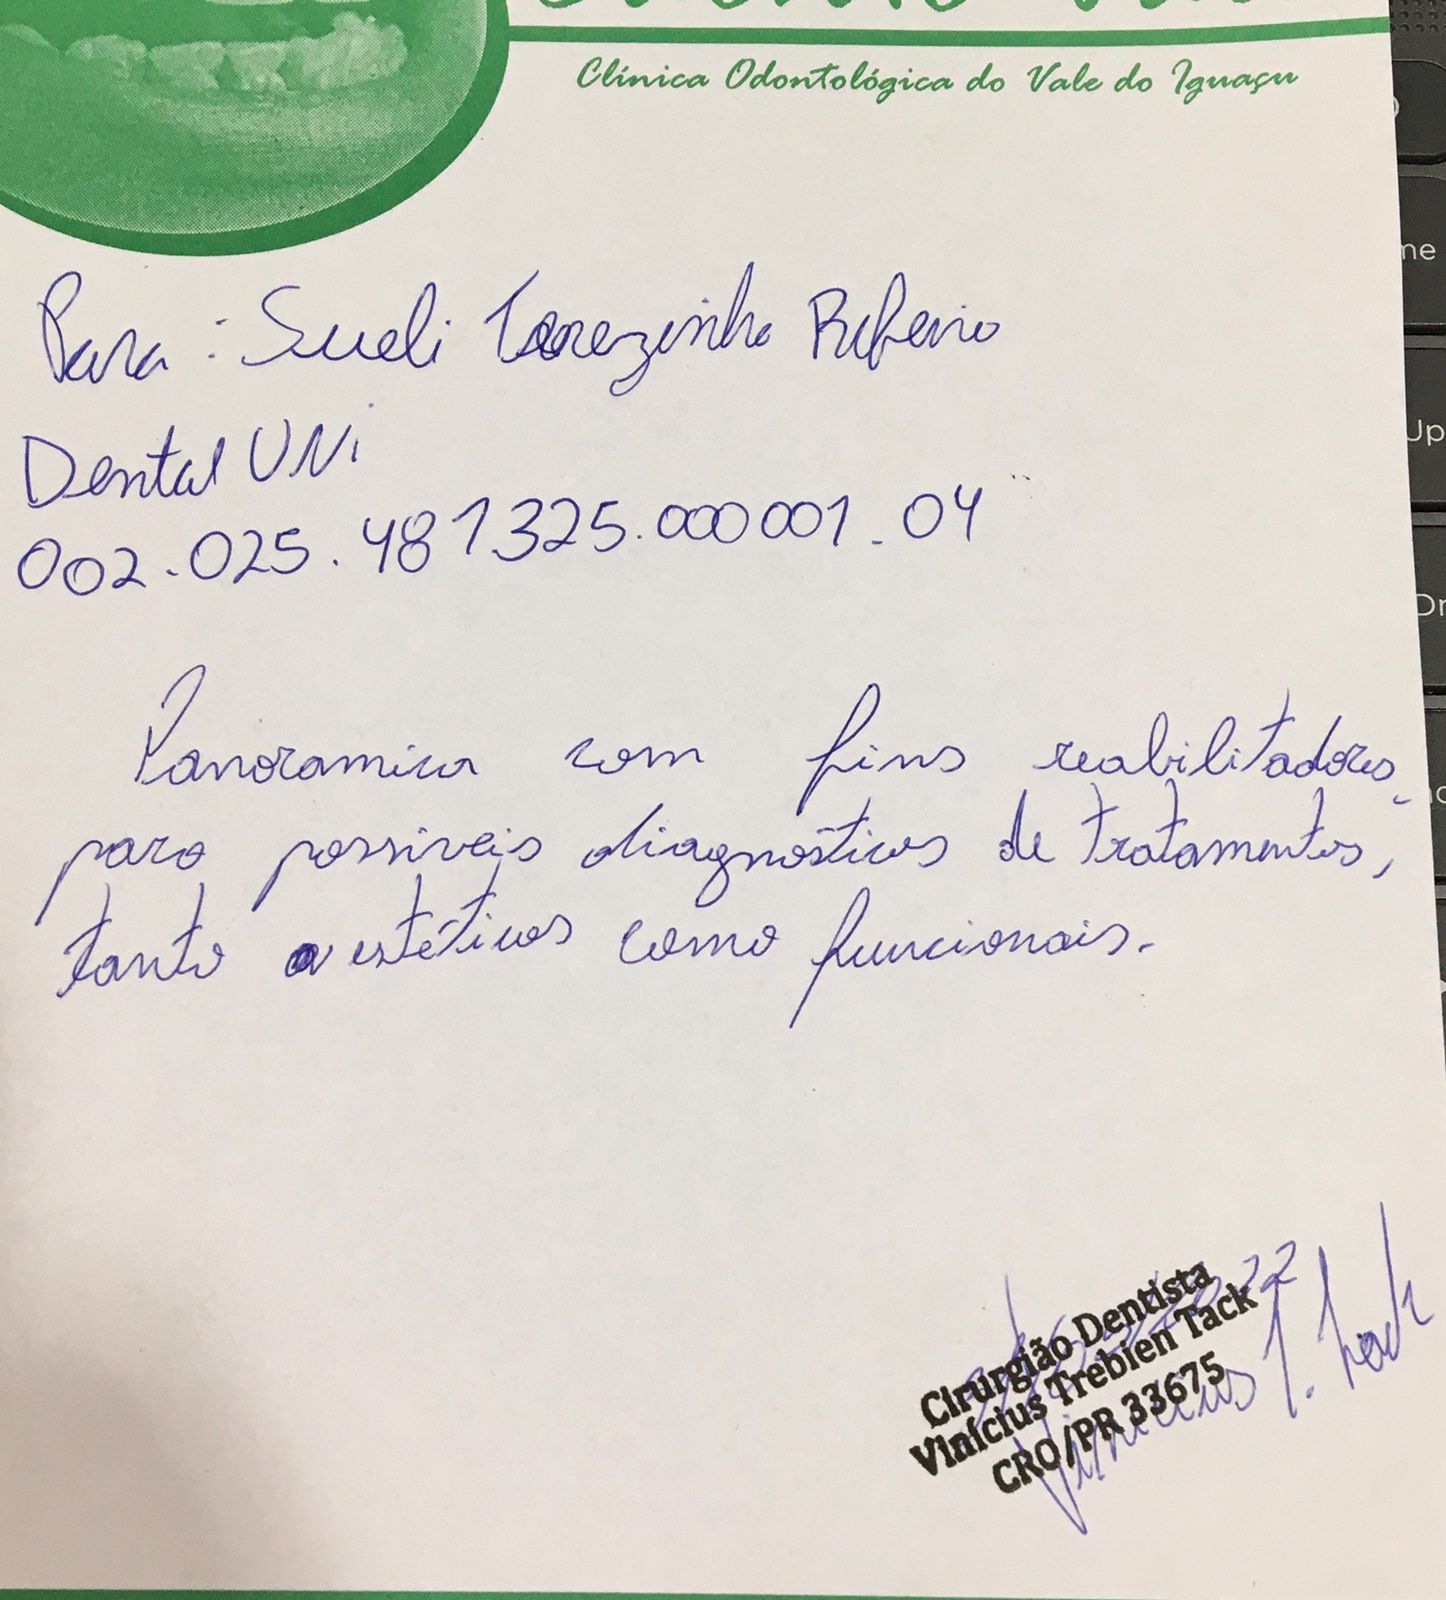 Clínica Odontológica do Vale do Iguaçu
Para: Sueli Terezinha Ribeiro
Dental UNi
002.025.481325.000001.04
Panoramica com fins reabilitadores,
para possiveis diagnósticos de tratamentos,
tanto estéticos como funcionais.
Cirurgião Dentista
Vinícius Trebien Tack
CRO/PR 33675
Vinícius T. Tack
Up